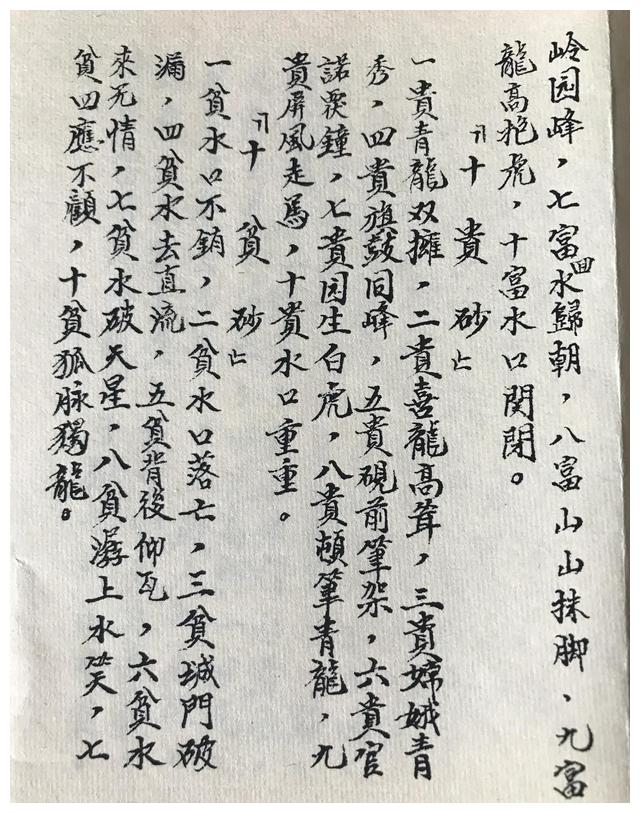 岭园峰，七富四水歸朝，八富山山抹脚、九富
龍高抱虎，十富水口関閉。
「十貴砂」
一貴青龍双擁，二貴喜龍高耸，三貴嫦娥青
秀，四貴旗鼓囘峰，五貴硯前筆架，六貴官
諾鐘，七貴园生白虎，八貴頓筆青龍，九
貴屏風走馬，十貴水口重重。
「十貧砂」
一貧水口不銷，二貧水口落亡，三貧城門破
漏，四貧水去直流，五貧背後仰瓦，六貧水
來无情，七貧水破天星，八貧潺上水笑，七
貧四應不顧，十貧狐脉獨龍。